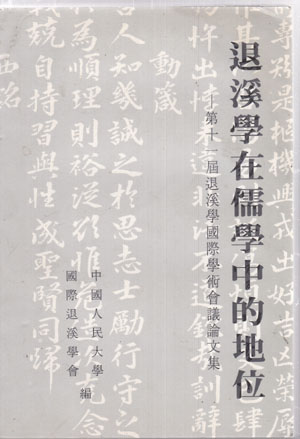 退溪學在儒學中的地位
—第十一屆退溪學國際學術會議論文集
中國人民大學
國際退溪學會
編
戎出好吉
物忤出悖
訓辭
動箴
人知幾誠之於思志士勵行守之
於為順理則裕從欲惟危造次克念
戰兢自持習與性成聖賢同歸
西銘